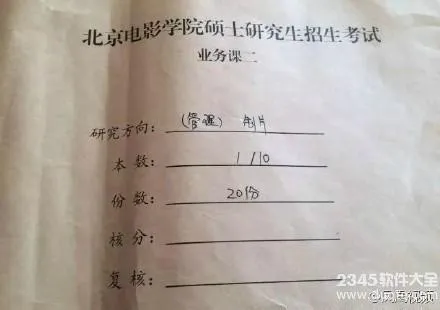 北京电影学院硕士研究生招生考试
业务课二
研究方向: (管理) 制片
本数: 1/10
份数: 20份
核分:
复核:
2345软件大全